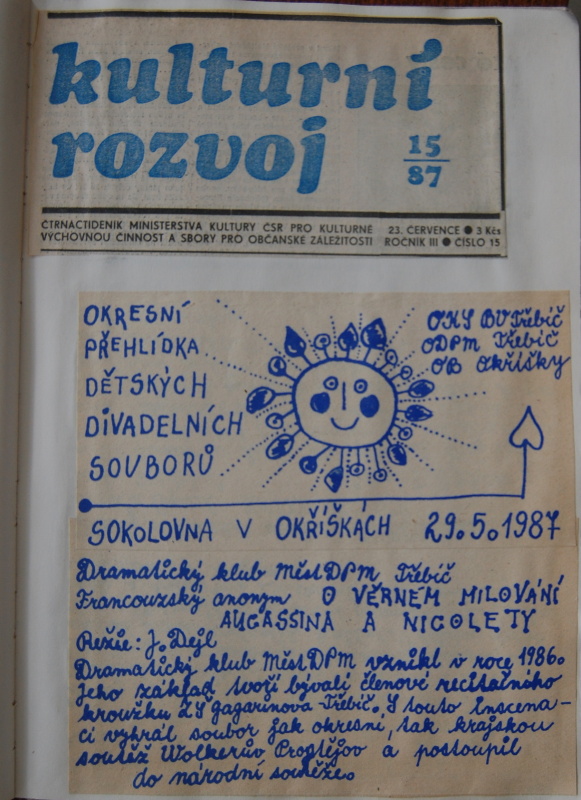 kulturní
rozvoj
15
87
ČTRNÁCTIDENÍK MINISTERSTVA KULTURY ČSR PRO KULTURNĚ
VÝCHOVNOU ČINNOST A SBORY PRO OBČANSKÉ ZÁLEŽITOSTI
23. ČERVENCE ● 3 Kčs
ROČNÍK III ● ČÍSLO 15
OKRESNÍ
PŘEHLÍDKA
DĚTSKÝCH
DIVADELNÍCH
SOUBORŮ
OKS BV Třebíč
ODPM Třebíč
OB Okříšky
SOKOLOVNA V OKŘÍŠKÁCH 29.5.1987
Dramatický klub MěstDPM Třebíč
Francouzský anonym O VĚRNÉM MILOVÁNÍ
AUCASSINA A NICOLETY
Režie: J. Dejl
Dramatický klub MěstDPM vznikl v roce 1986.
Jeho základ tvoří bývalí členové recitačního
kroužku ZŠ Gagarinova-Třebíč. S touto inscena-
cí vyhrál soubor jak okresní, tak krajskou
soutěž Wolkerův Prostějov a postoupil
do národní soutěže.